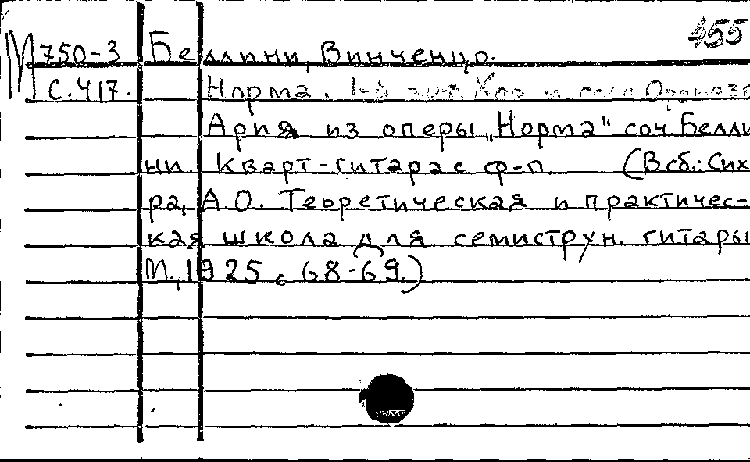 455
М 750-3 Беллини, Винченцо.
С. 417. Норма. 1-й Хор и Оровезо
Ария из оперы „Норма" соч. Белли
ни. Кварт-гитара с ф-п. (В сб.: Сих
ра, А.О. Теоретическая и практичес-
кая школа для семиструн. гитары
М., 1925 с 68-69.)